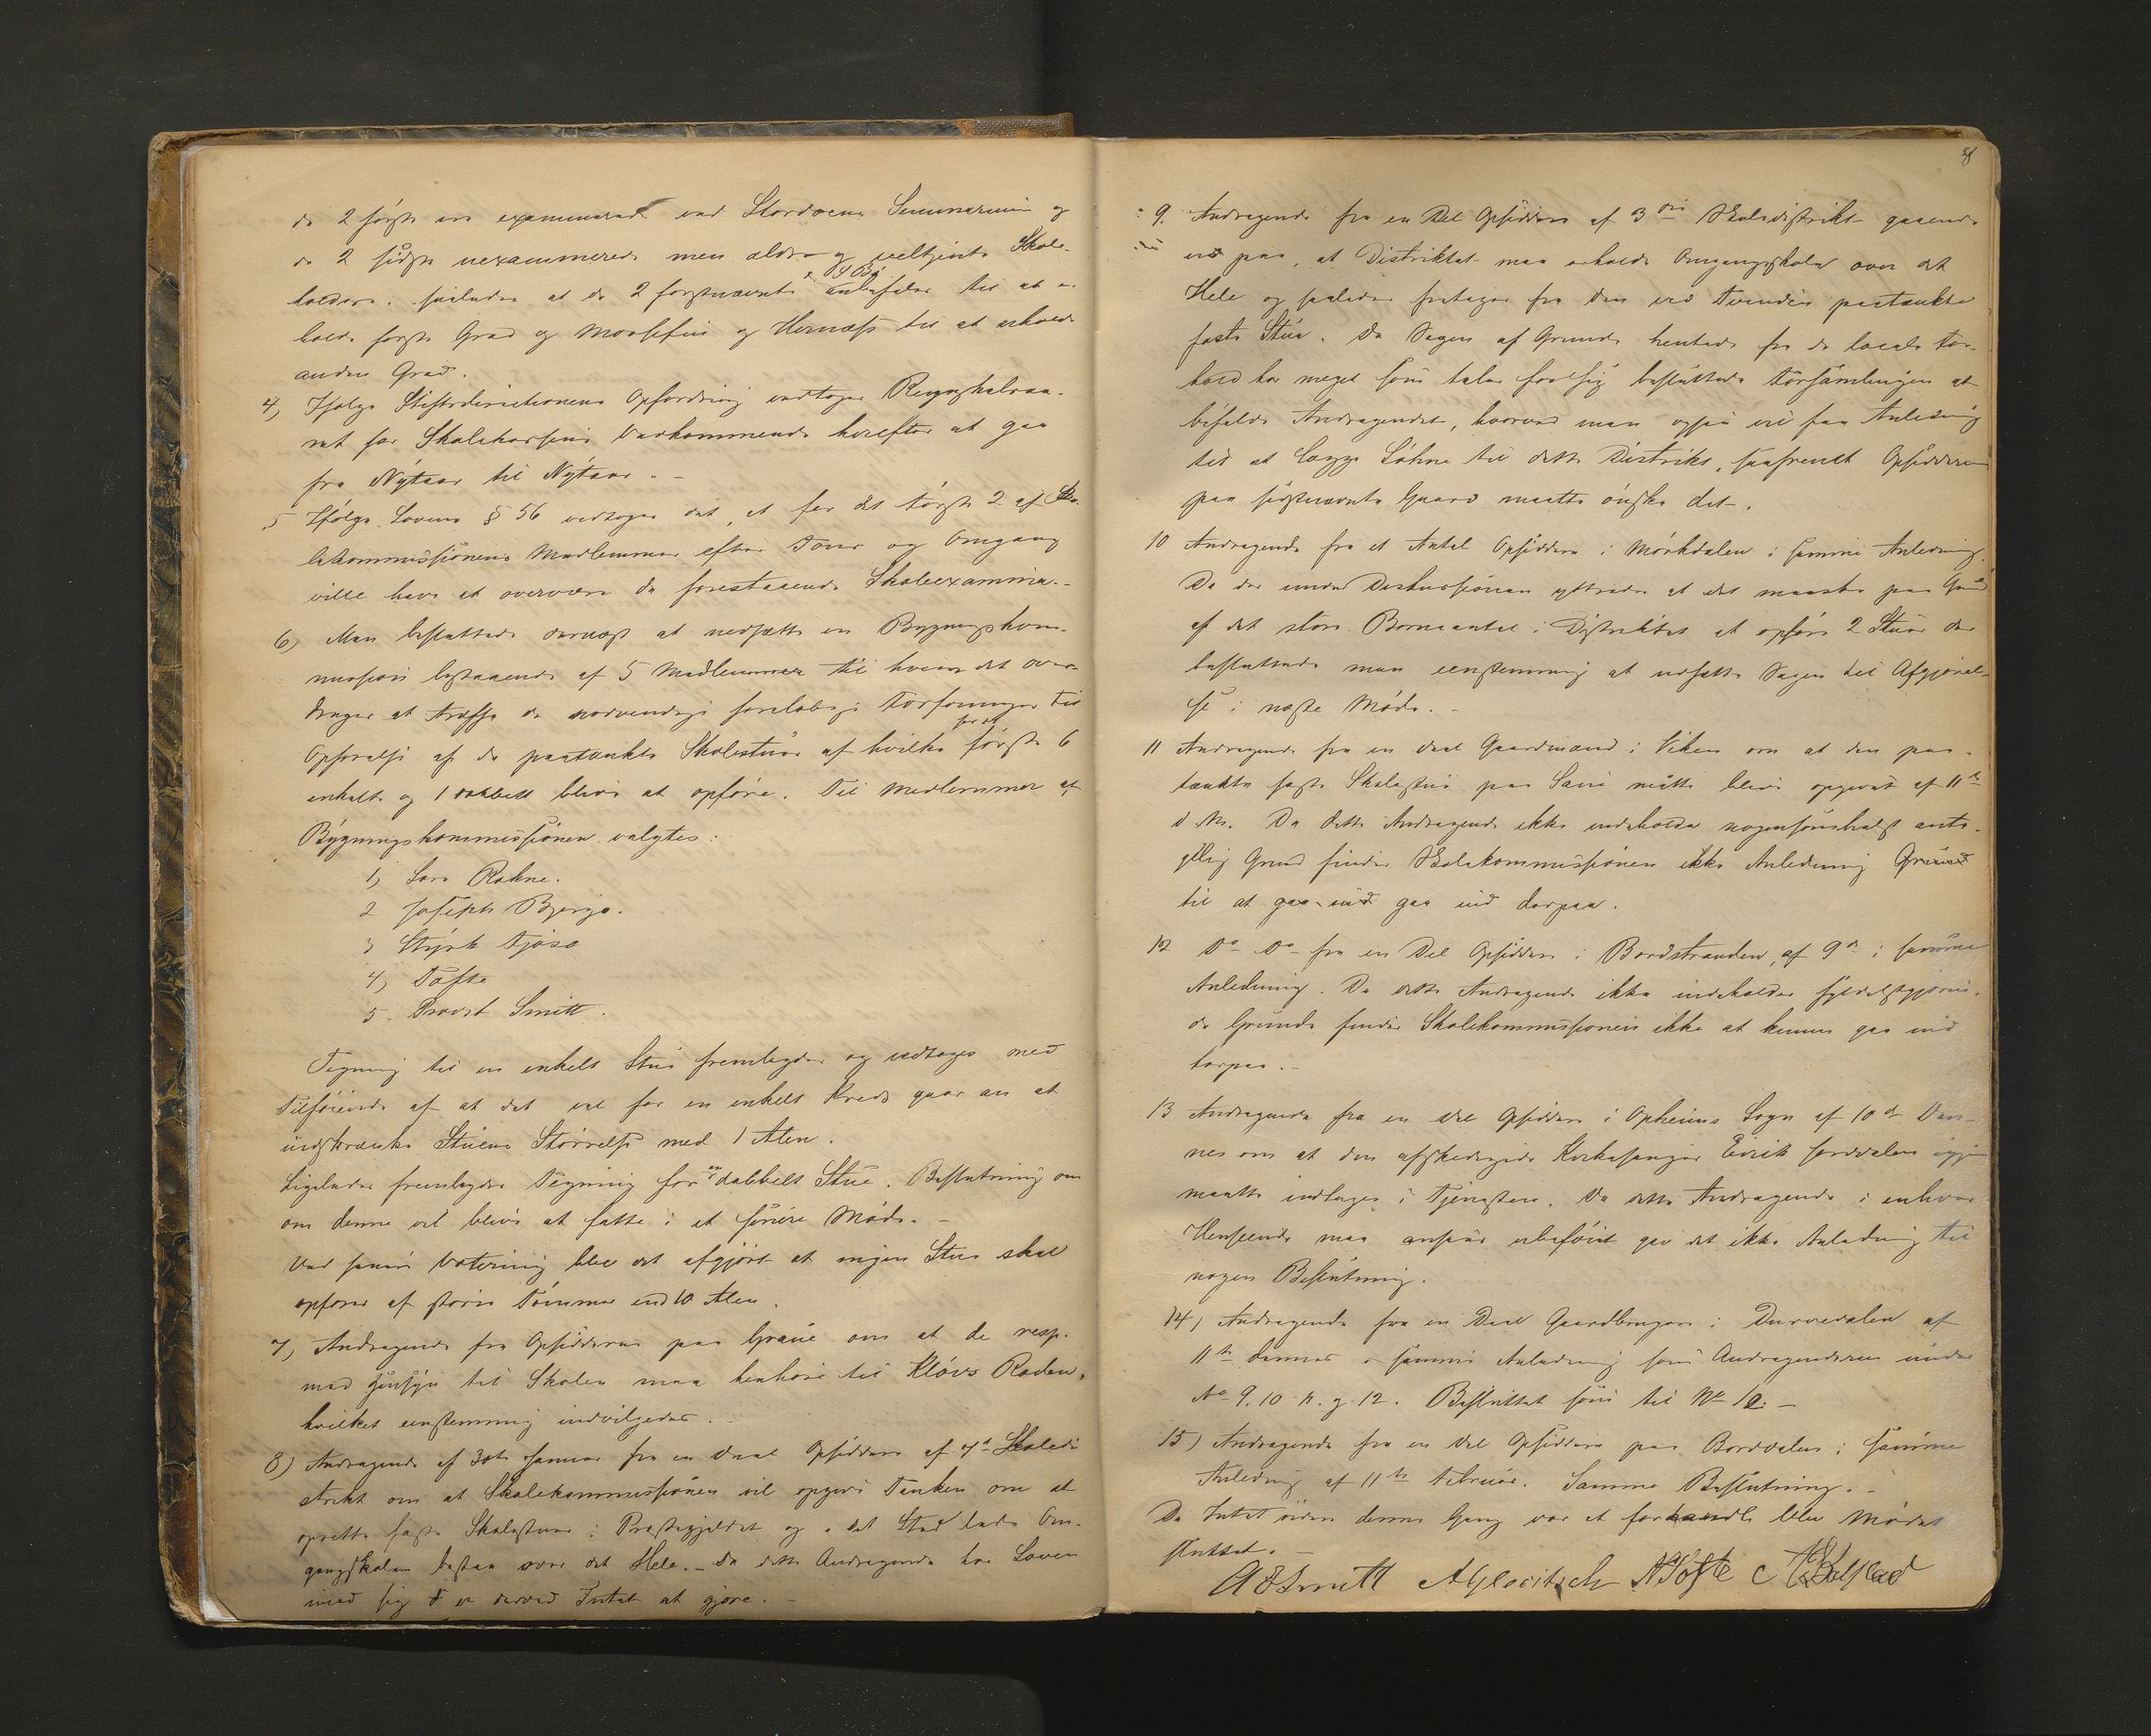 de 2 første ere examinerede ved Stordøens Seminarium og
de 2 sidste uexaminerede men ældre og veltjente Skole-
holdere. saaledes at de 2 førstnævnte anbefales til at er-
holde første Grad og Moosefin og Hernæss til at erholde
anden Grad.
4, Ifølge Stiftsdirectionens Opfordring vedtoges Regnskabsaa-
ret for Skolekassens Vedkommende herefter at gaa
fra Nytaar til Nytaar. -
5 Ifølge Lovens § 56 vedtoges det, at for det første 2 af Sko-
lekommissionens Medlemmer efter Tour og Omgang
ville have at overvære de forestaaende Skoleexamina. -
6) Man besluttede dernæst at nedsætte en Bygningskom-
mission bestaaende af 5 Medlemmer til hvem det over-
drages at træffe de nødvendige foreløbige Forføininger til
Opførelse af de paatænkte Skolestuer af hvilke for det første 6
enkelte og 1 dobbelt blive at opføre. Til Medlemmer af
Bygningskommissionen valgtes:
1) Lars Rokne.
2 Joseph Bjerge.
3 Styrk Fjose
4) Tøfte
5. Provst Smitt.
Tegning til en enkelt Stue fremlagdes og vedtoges med
Tilføiende af at det vel for en enkelt Kreds gaar an at
indskrænke Stuens Størrelse med 1 Alen.
Ligeledes fremlagdes Tegning for en dobbelt Stue. Beslutning om
om denne vil blive at fatte i et senere Møde. -
Ved senere Votering blev det afgjort at ingen Stue skal
opføres af større Tømmer end 10 Alen.
7, Andragende fra Opsidderne paa Graue om at de resp.
med Hensyn til Skolen maa henhøre til Kløvs Roden,
hvilket eenstemmig indvilgedes. -
8) Andragende af 30te Januar fra en Deel Opsiddere af 7de Skoledi-
strikt om at Skolekommissionen vil opgive Tanken om at
oprette faste Skolestuer i Præstegjeldet og i det Sted lade Om-
gangsskolen bestaa over det Hele. - Da dette Andragende har Loven
imod sig er derved Intet at gjøre. -
8
9. Andragende fra en Del Opsiddere af 3die Skoledistrikt gaaende
ud paa, at Distriktet maa erholde Omgangsskolen over det
Hele og saaledes fritages fra den ved Tvinden paatænkte
faste Stue. Da Sagen af Grunde hentede fra de locale For-
hold har meget som taler for sig besluttede Forsamlingen at
bifalde Andragendet, hvorved man ogsaa vil faa Anledning
til at lægge Løhne til dette Distrikt, saafremt Opsidderne
paa sidstnævnte Gaard maatte ønske det.
10 Andragende fra et Antal Opsiddere i Mørkdalen i samme Anledning.
Da der under Diskussionen yttredes at det maaske paa Grund
af det store Børneantal i Distriktet at opføre 2 Stuer der
besluttede man eenstemmig at udsætte Sagen til Afgjørel-
se i næste Møde. -
11 Andragende fra en Deel Gaardmænd i Viken om at den paa-
tænkte faste Skolestue paa Saue maatte blive opgivet af 11te
d. M. Da dette Andragende ikke indeholder nogensomhelst anta-
gelig Grund finder Skolekommissionen ikke Anledning Grund
til at gaa ind gaa ind derpaa.
12 Do Do fra en Del Opsiddere i Bordstranden, af 9de i samme
Anledning. Da dette Andragende ikke indeholder fyldestgjøren-
de Grunde finder Skolekommissionen ikke at kunne gaa ind
derpaa. -
13 Andragende fra en Del Opsiddere i Opheims Sogn af 10de Den-
nes om at den afskedigede Kirkesanger Eirik Jorddalen igjen
maatte indtages i Tjenesten. Da dette Andragende i enhver
Henseende maa ansees ubeføiet gav det ikke Anledning til
nogen Beslutning.
14) Andragende fra en Deel Gaardbrugere i Dyrvedalen af
11te dennes i samme Anledning som Andragenderne under
No 9. 10 11. og 12. Besluttet som til No 12. -
15) Andragende fra en Del Opsiddere paa Borddalen i samme
Anledning af 11te Februar. Samme Beslutning. -
Da Intet videre denne Gang var at forhandle blev Mødet
sluttet. -
A E Smitt N Tøfte